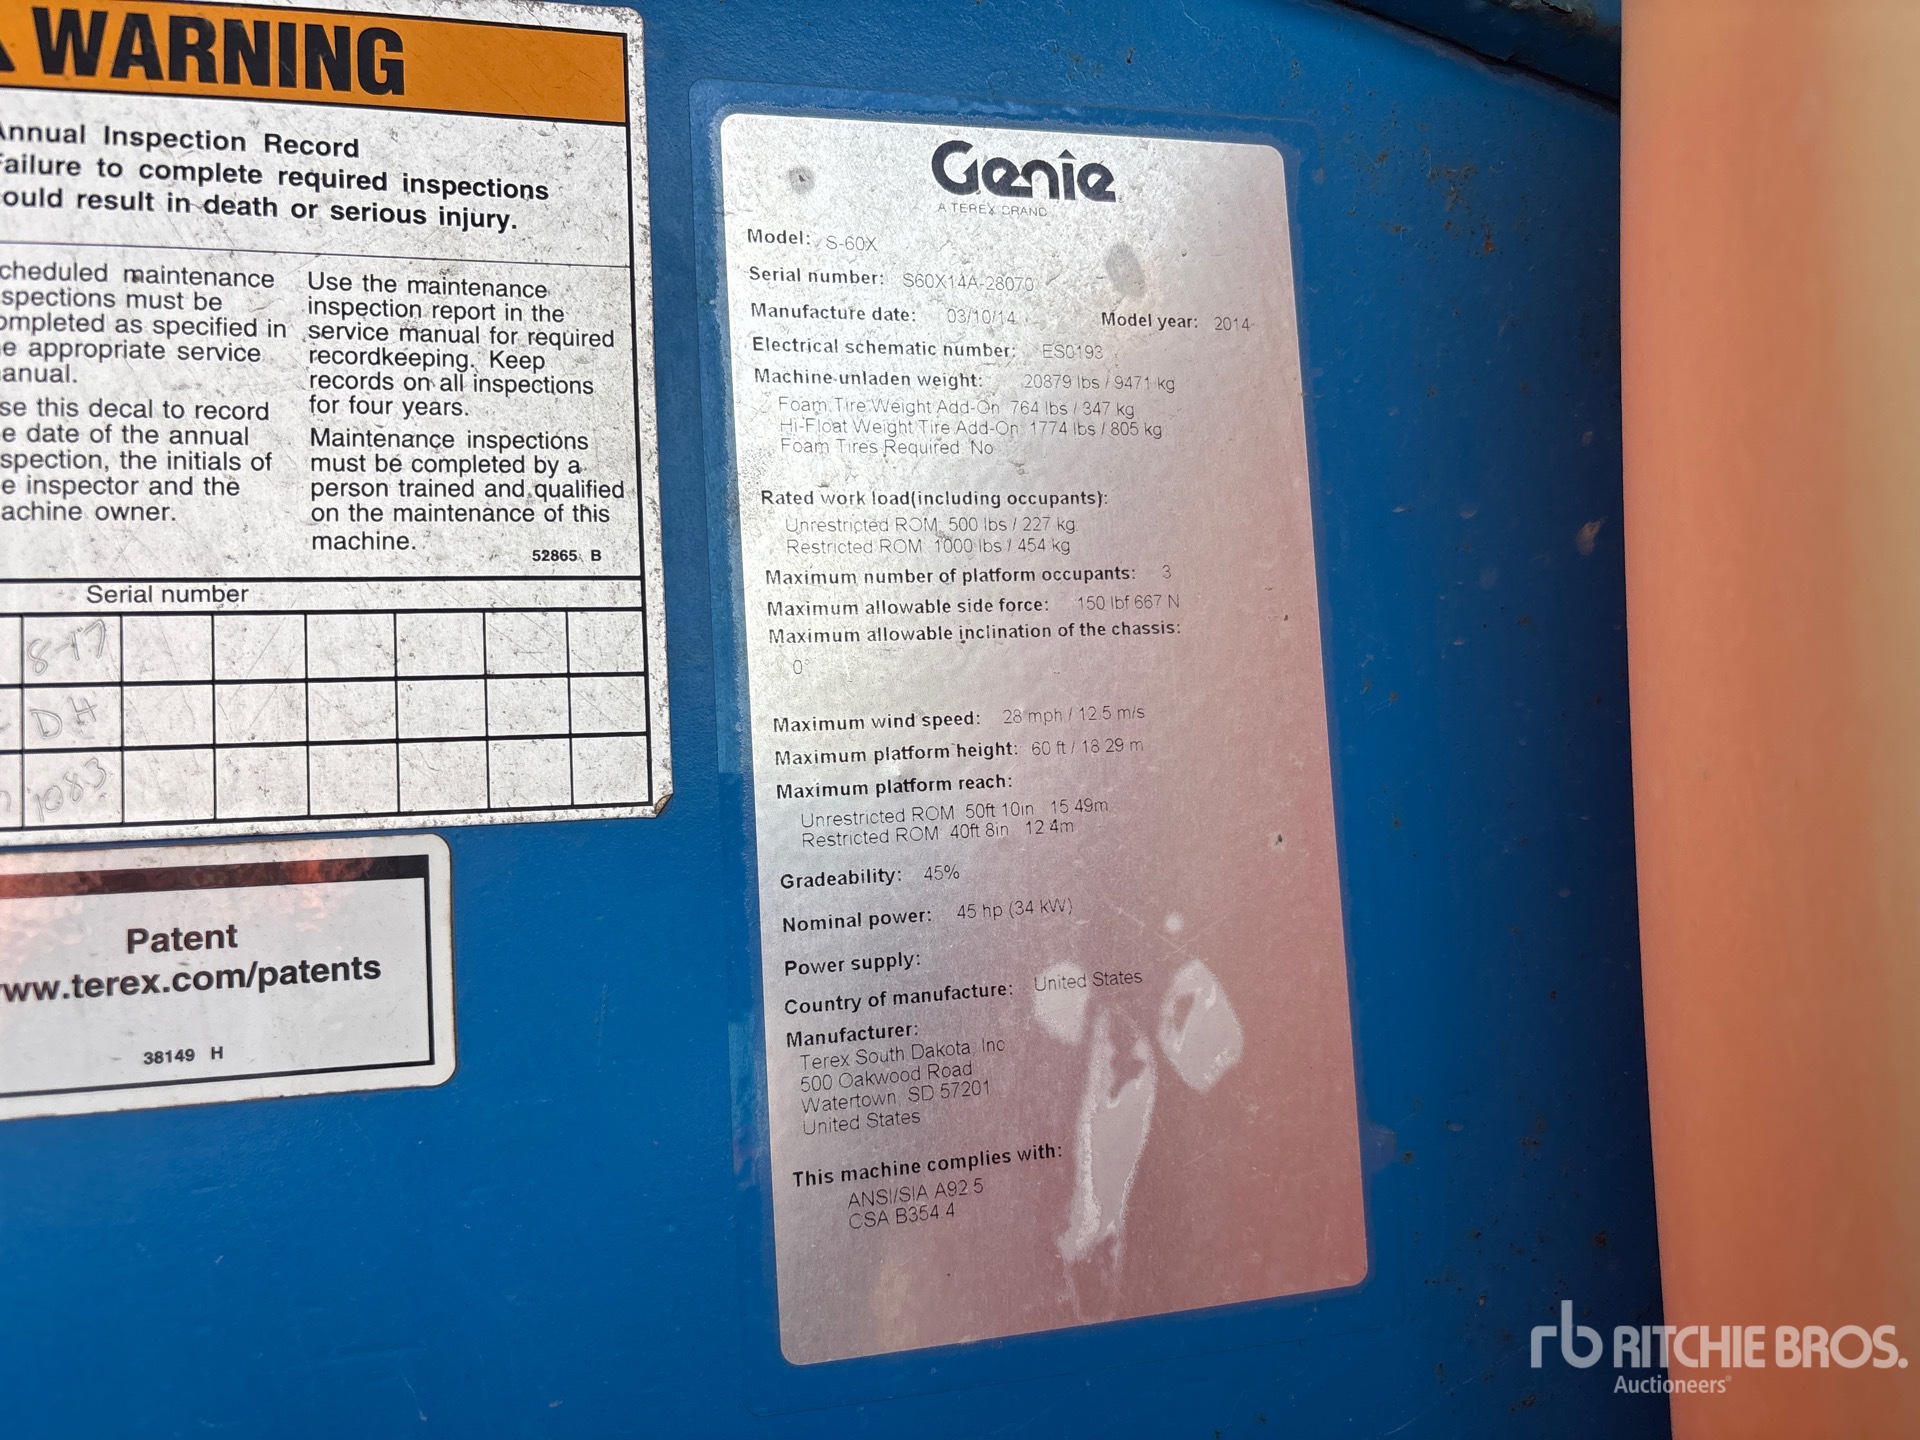 WARNING
Annual Inspection Record
Failure to complete required inspections
ould result in death or serious injury.
cheduled maintenance
spections must be
ompleted as specified in
e appropriate service
anual.
se this decal to record
e date of the annual
spection, the initials of
e inspector and the
achine owner.
Use the maintenance
inspection report in the
service manual for required
recordkeeping. Keep
records on all inspections
for four years.
Maintenance inspections
must be completed by a
person trained and qualified
on the maintenance of this
machine.
52865 B
Serial number
8-17
DH
1083
Patent
ww.terex.com/patents
38149 H
Genie
A TEREX BRAND
Model: S-60X
Serial number: S60X14A-28070
Manufacture date: 03/10/14 Model year: 2014
Electrical schematic number: ES0193
Machine unladen weight: 20879 lbs / 9471 kg
Foam Tire Weight Add-On 764 lbs / 347 kg
Hi-Float Weight Tire Add-On 1774 lbs / 805 kg
Foam Tires Required No
Rated work load(including occupants):
Unrestricted ROM 500 lbs / 227 kg
Restricted ROM 1000 lbs / 454 kg
Maximum number of platform occupants: 3
Maximum allowable side force: 150 lbf 667 N
Maximum allowable inclination of the chassis:
0°
Maximum wind speed: 28 mph / 12.5 m/s
Maximum platform height: 60 ft / 18.29 m
Maximum platform reach:
Unrestricted ROM 50ft 10in 15.49m
Restricted ROM 40ft 8in 12.4m
Gradeability: 45%
Nominal power: 45 hp (34 kW)
Power supply:
Country of manufacture: United States
Manufacturer:
Terex South Dakota, Inc
500 Oakwood Road
Watertown, SD 57201
United States
This machine complies with:
ANSI/SIA A92.5
CSA B354.4
rb RITCHIE BROS.
Auctioneers